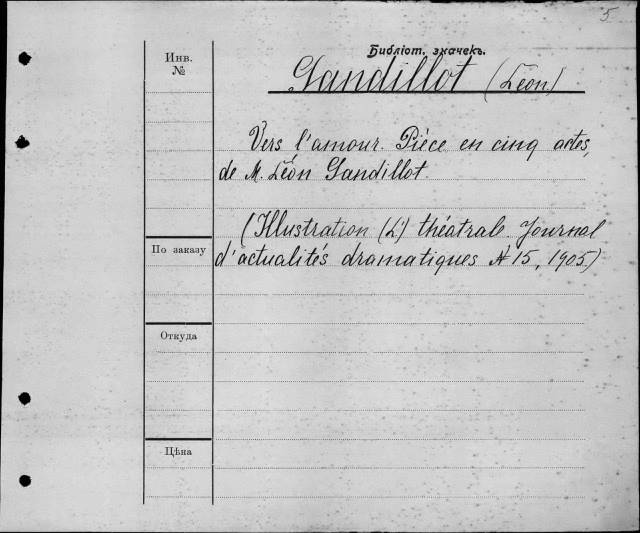 5
Библіот. значекъ.
Инв.
№
Gandillot (Léon)
Vers l'amour. Pièce en cinq actes,
de M. Léon Gandillot.
(Illustration (L') théatrale. Journal
По заказу
d'actualités dramatiques № 15, 1905)
Откуда
Цѣна